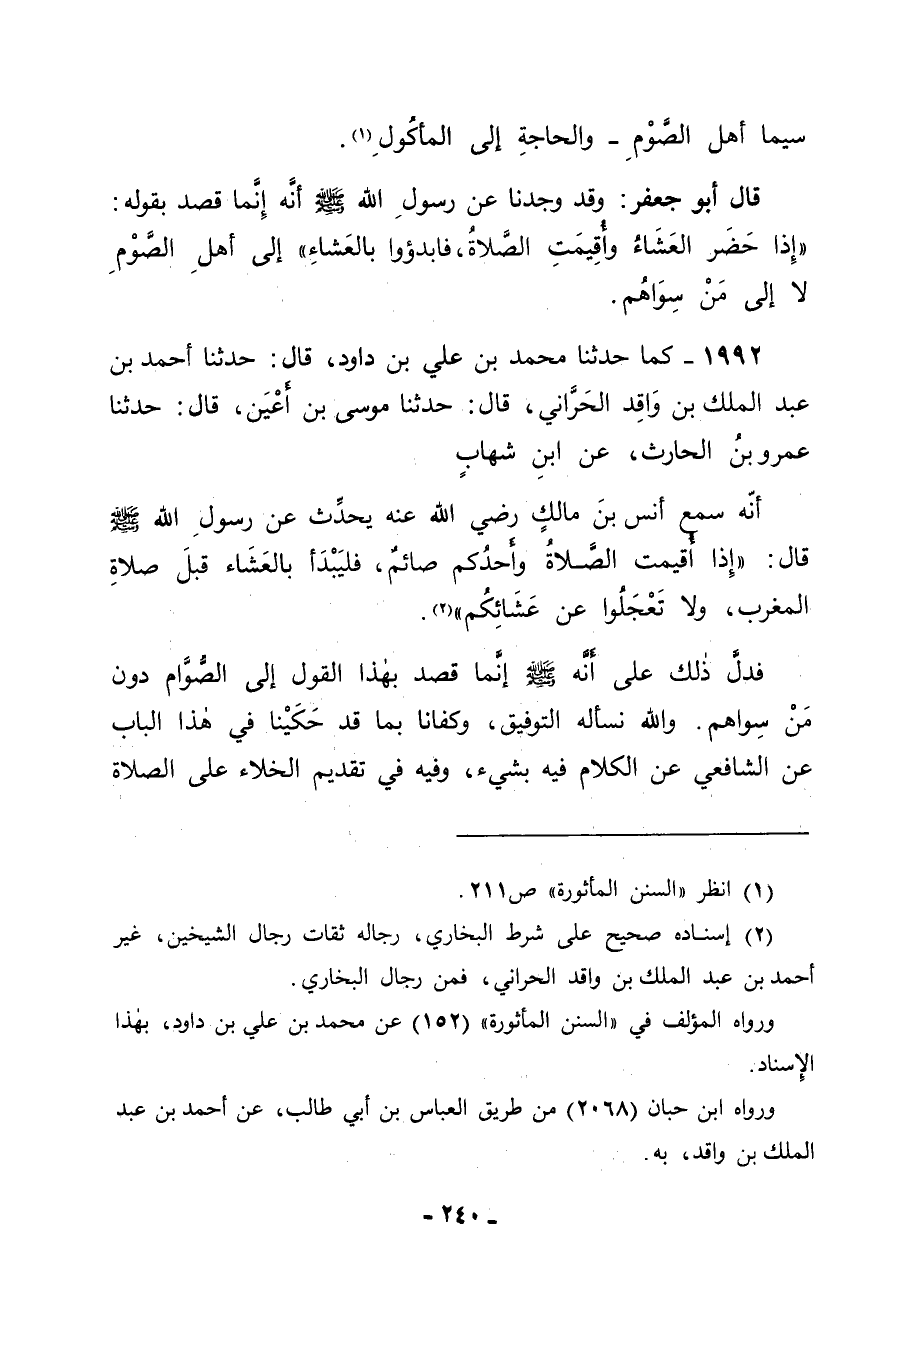 سيما أهل الصَّوْمِ - والحاجةِ إلى المأكُولِ(١).
قال أبو جعفر: وقد وجدنا عن رسولِ الله ﷺ أنَّه إنَّما قصد بقوله:
«إذا حَضَر العَشَاءُ وأُقِيمَتِ الصَّلاةُ، فابدؤوا بالعَشاءِ» إلى أهلِ الصَّوْمِ
لا إلى مَنْ سِوَاهُم.
١٩٩٢ - كما حدثنا محمد بن علي بن داود، قال: حدثنا أحمد بن
عبد الملك بن وَاقِد الحَرَّاني، قال: حدثنا موسى بن أَعْيَن، قال: حدثنا
عمرو بنُ الحارث، عن ابنِ شهابٍ
أنّه سمع أنس بنَ مالكٍ رضي الله عنه يحدِّث عن رسولِ الله ﷺ
قال: «إذا أُقيمت الصَّلاةُ وأَحدُكم صائمٌ، فليَبْدَأ بالعَشَاء قبلَ صلاةِ
المغرب، ولا تَعْجَلُوا عن عَشَائِكُم»(٢).
فدلَّ ذٰلك على أَنَّه ﷺ إنَّما قصد بهٰذا القول إلى الصُّوَّام دون
مَنْ سِواهم. والله نسأله التوفيق، وكفانا بما قد حَكَيْنا في هٰذا الباب
عن الشافعي عن الكلام فيه بشيء، وفيه في تقديم الخلاء على الصلاة
(١) انظر «السنن المأثورة» ص٢١١.
(٢) إسناده صحيح على شرط البخاري، رجاله ثقات رجال الشيخين، غير
أحمد بن عبد الملك بن واقد الحراني، فمن رجال البخاري.
ورواه المؤلف في «السنن المأثورة» (١٥٢) عن محمد بن علي بن داود، بهٰذا
الإسناد.
ورواه ابن حبان (٢٠٦٨) من طريق العباس بن أبي طالب، عن أحمد بن عبد
الملك بن واقد، به.
- ٢٤٠ -